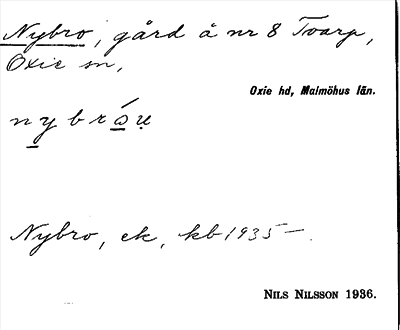 Nybro, gård å nr 8 Tvarp,
Oxie sn,
Oxie hd, Malmöhus län.
nybróu̯
Nybro, ek, kb 1935–.
NILS NILSSON 1936.